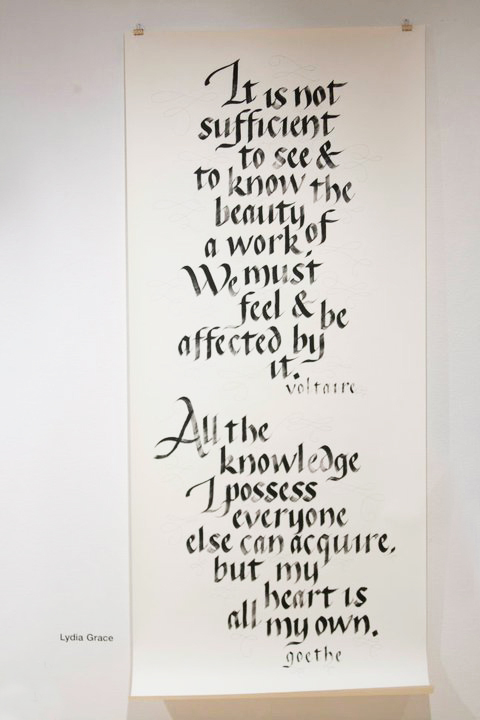 It is not
sufficient
to see &
to know the
beauty
a work of.
We must
feel & be
affected by
it.
voltaire
All the
knowledge
I possess
everyone
else can acquire.
but my
heart is
all my own.
goethe
Lydia Grace